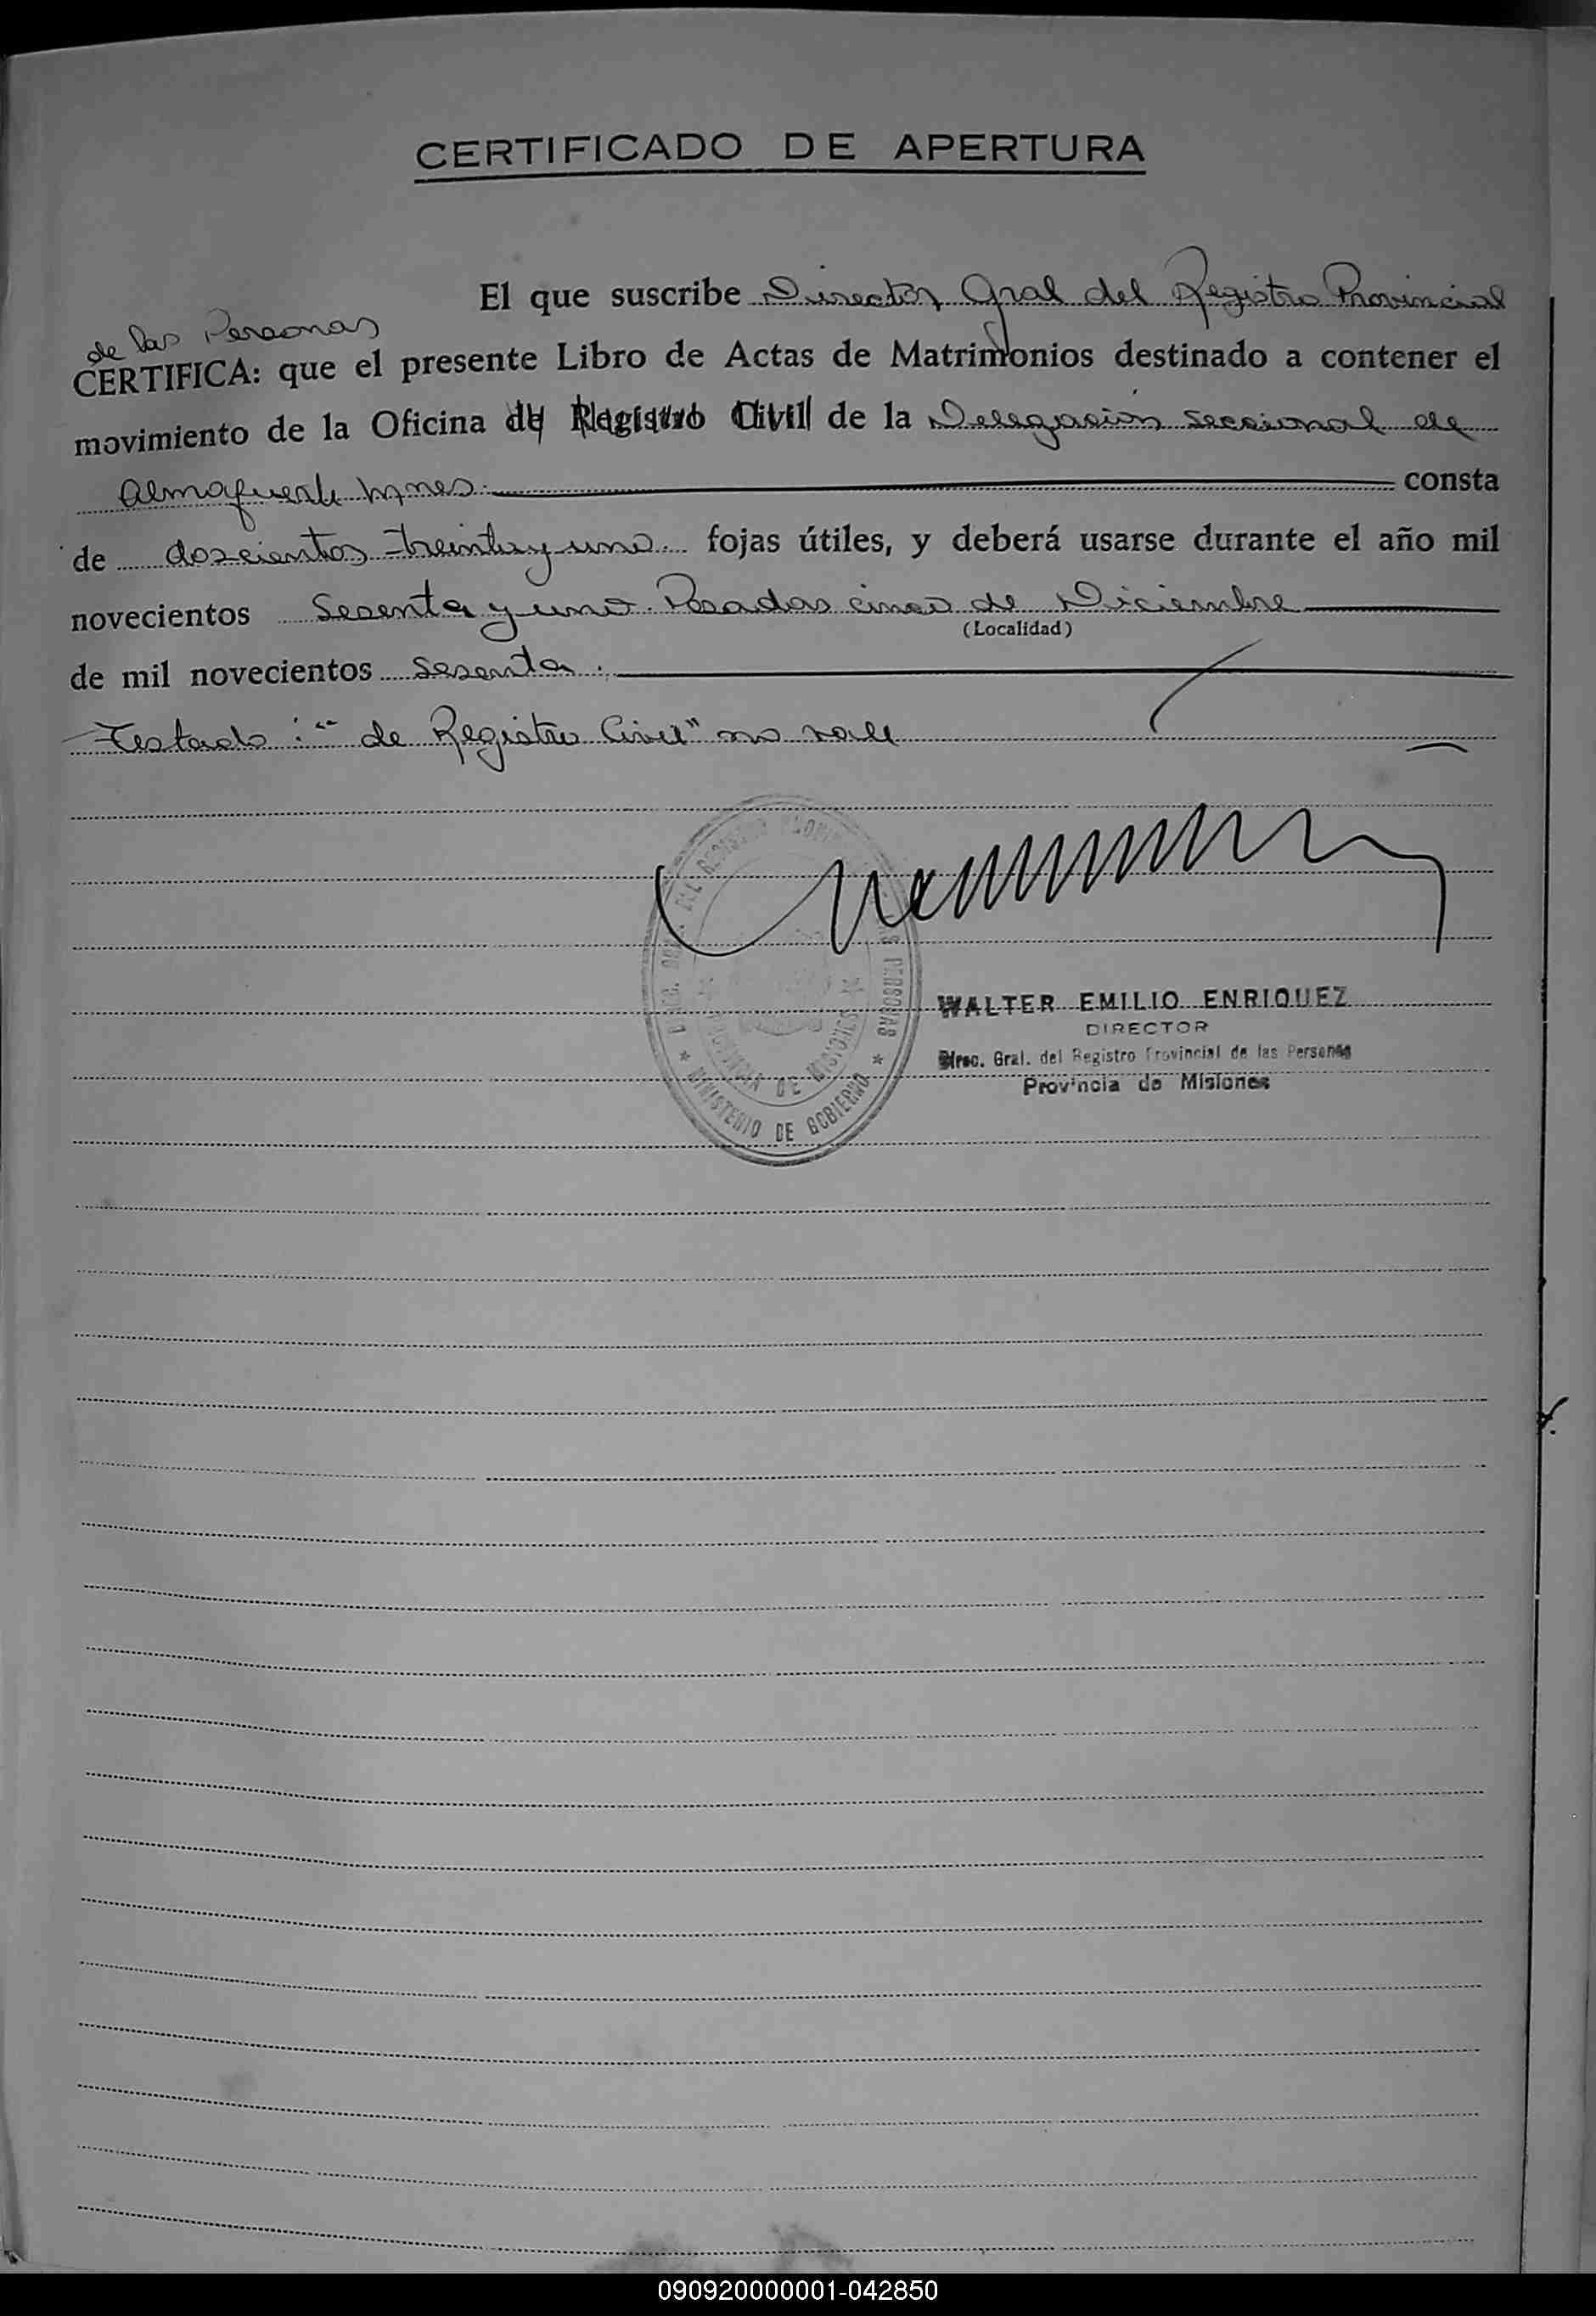 CERTIFICADO DE APERTURA
El que suscribe Director Gral del Registro Provincial
de las Personas
CERTIFICA: que el presente Libro de Actas de Matrimonios destinado a contener el
movimiento de la Oficina de Registro Civil de la Delegación seccional de
Almafuerte Mnes. consta
de doscientos treinta y uno fojas útiles, y deberá usarse durante el año mil
novecientos Sesenta y uno. Posadas cinco de Diciembre
(Localidad)
de mil novecientos sesenta.
Testado: "de Registro Civil" no vale
DIREC. GRAL. DEL REGISTRO PROVINCIAL DE LAS PERSONAS
PROVINCIA DE MISIONES
* MINISTERIO DE GOBIERNO *
WALTER EMILIO ENRIQUEZ
DIRECTOR
Direc. Gral. del Registro Provincial de las Personas
Provincia de Misiones
090920000001-042850